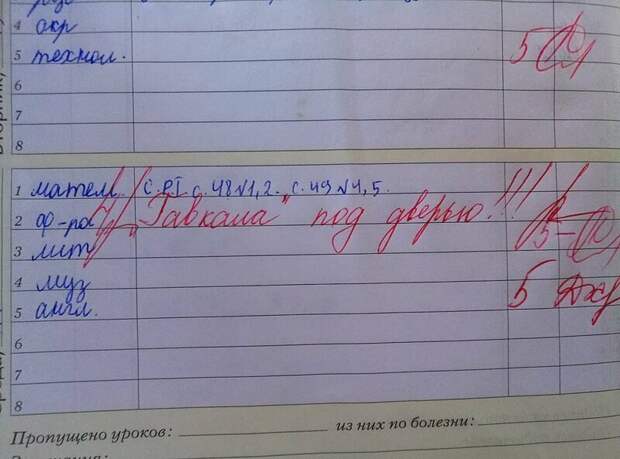 4 окр
5 технол. 5
6
7
8
1 матем. с. 48 №1, 2. с. 49 №4, 5.
2 ф-ра !!! "Гавкала" под дверью!!!
3 лит 5-
4 муз 5
5 англ.
6
7
8
Пропущено уроков: из них по болезни: